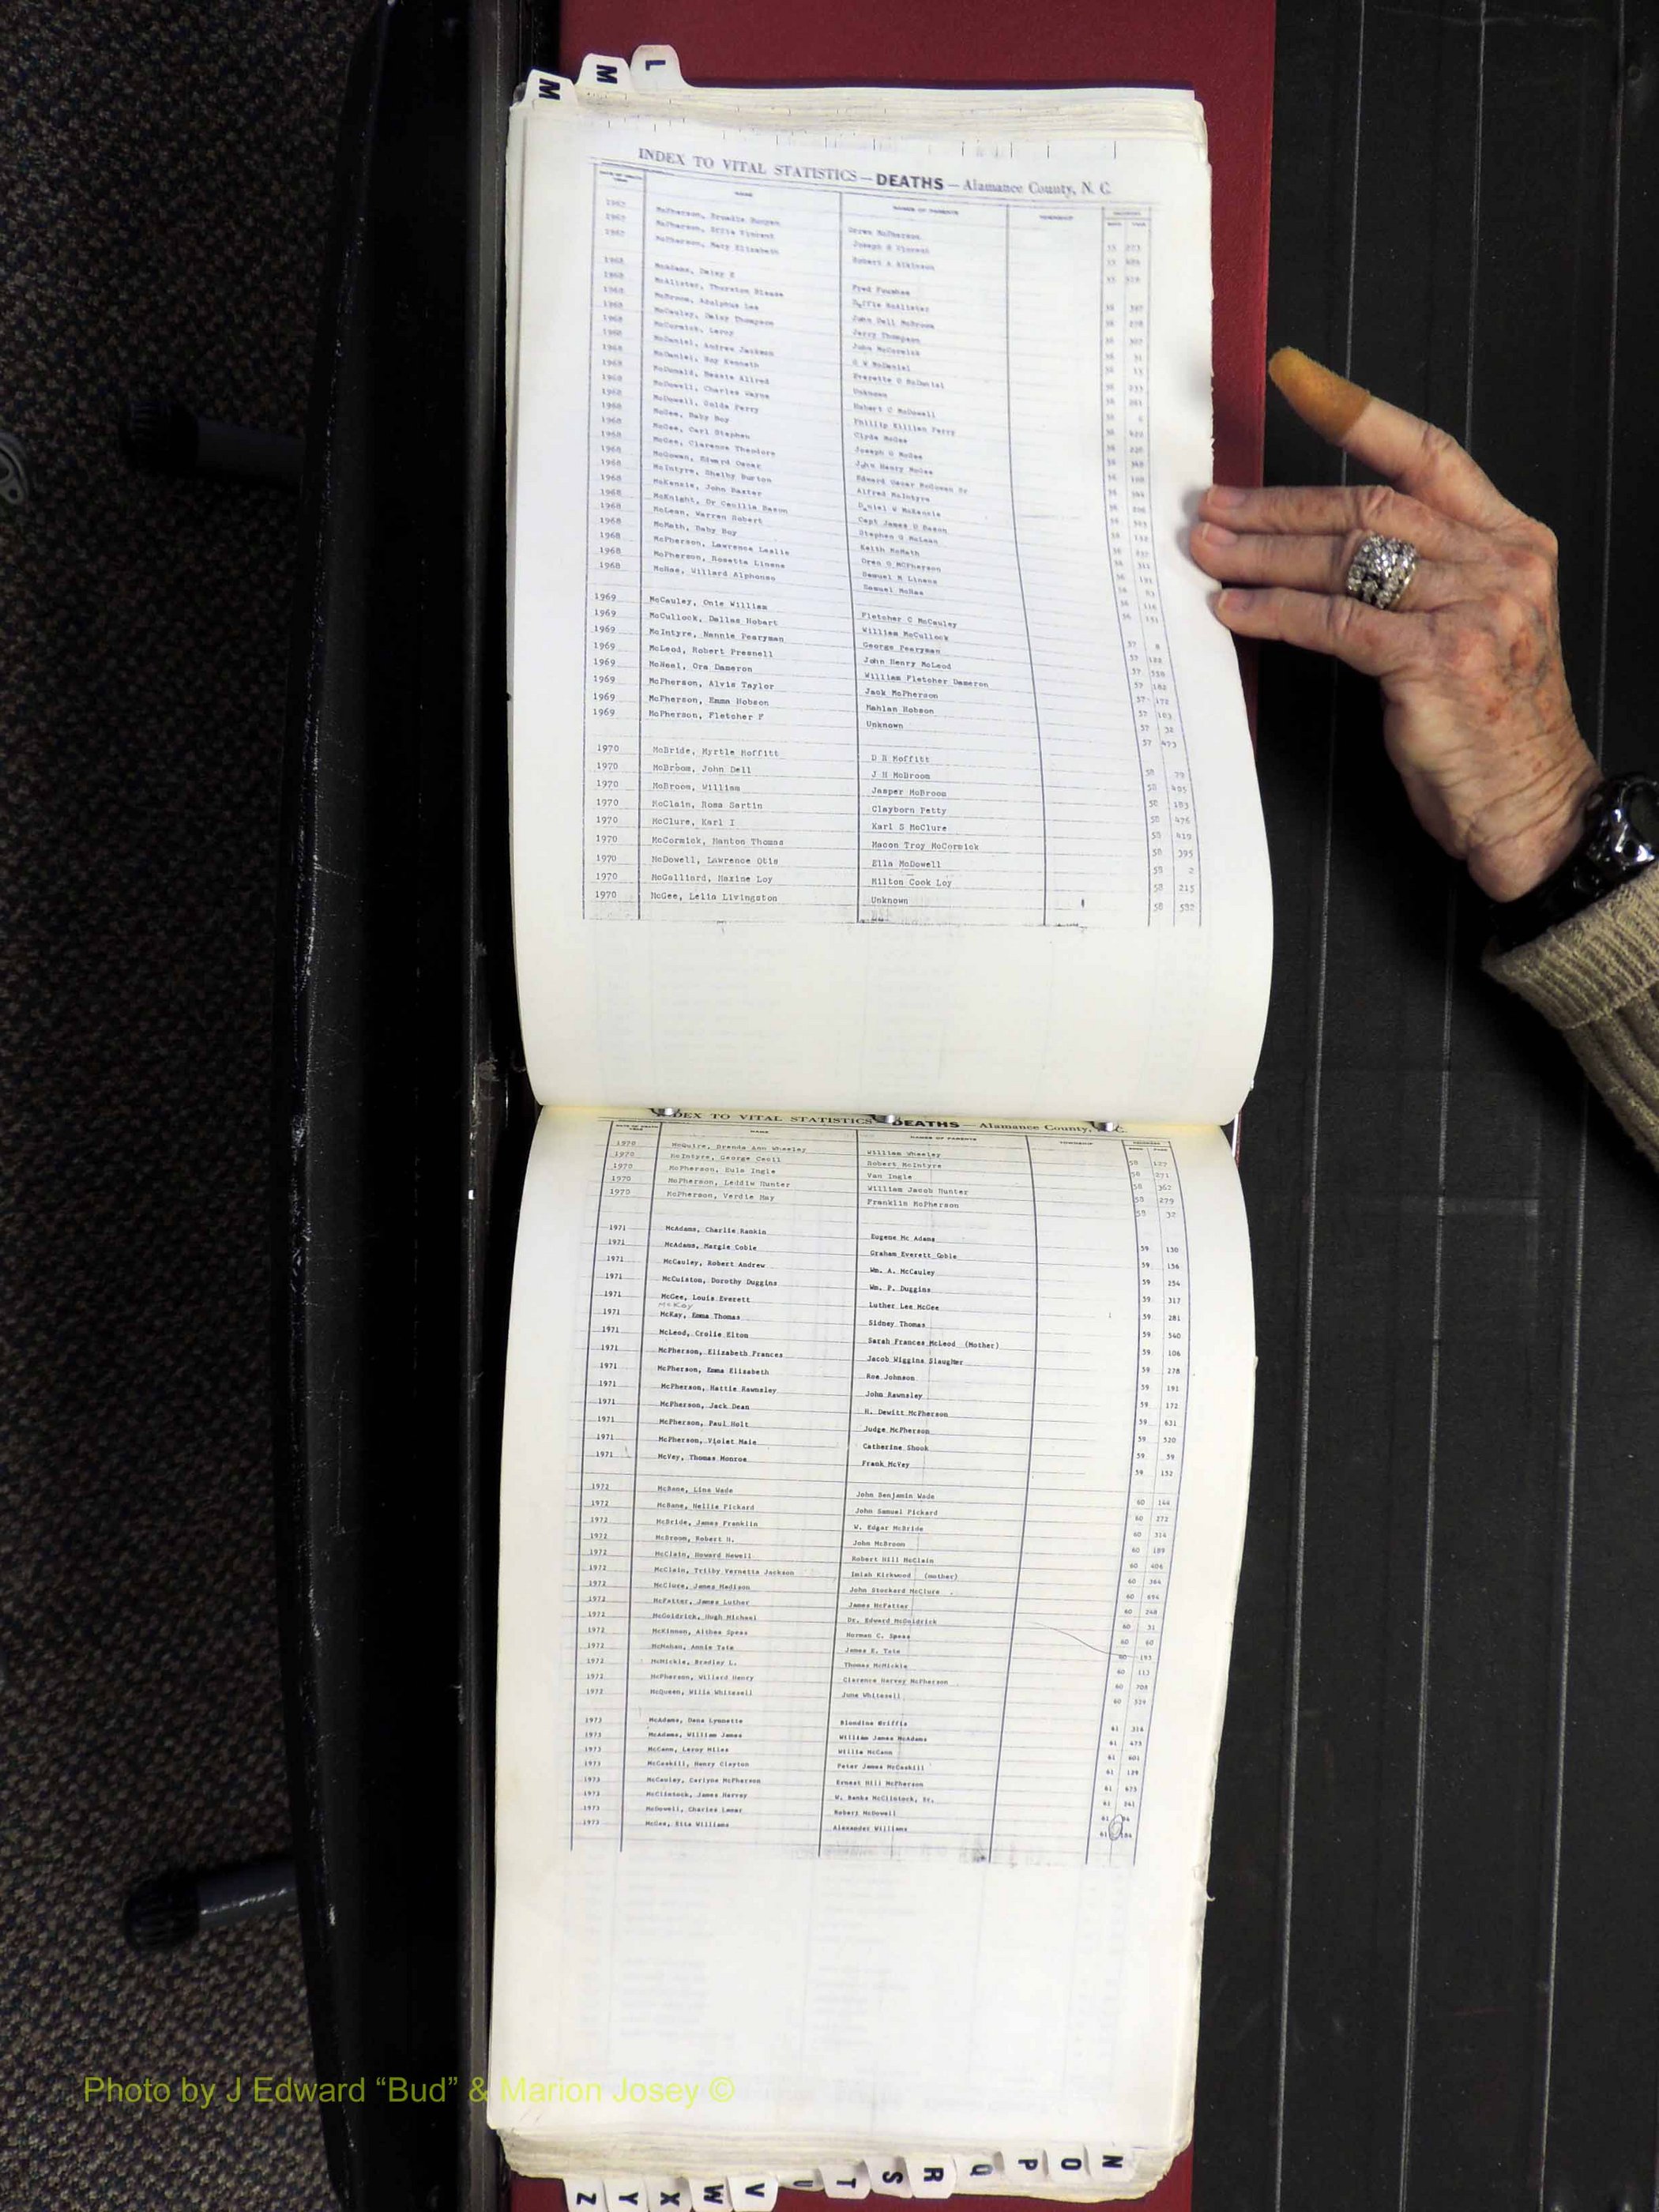 L
M
M
INDEX TO VITAL STATISTICS — DEATHS — Alamance County, N. C.
NAME NAMES OF PARENTS TOWNSHIP
1967 McPherson, Bunyen Oren McPherson
1967 McPherson, Effie Vincent Joseph Vincent
1967 McPherson, Mary Elizabeth Robert A Atkinson
1968 McAdams, Daisy Fred Foushee
1968 McAlister, Thurston McAlister
1968 McBroom, Adolphus Lee John Dell McBroom
1968 McCauley, Daisy Thompson Jerry Thompson
1968 McCormick, Leroy John McCormick
1968 McDaniel, Andrew Jackson G W McDaniel
1968 McDaniel, Roy Kenneth Everette McDaniel
1968 McDonald, Bessie Allred Unknown
1968 McDowell, Charles Wayne Hubert C McDowell
1968 McDowell, Golda Perry Phillip Killian Perry
1968 McGee, Baby Boy Clyde McGee
1968 McGee, Carl Stephen Joseph G McGee
1968 McGee, Clarence Theodore John Henry McGee
1968 McGowan, Edward Oscar Edward Oscar McGowan Sr
1968 McIntyre, Shelby Burton Alfred McIntyre
1968 McKenzie, John Baxter Daniel W McKenzie
1968 McKnight, Dr Cecilia Eason Capt James Eason
1968 McLean, Warren Hobert Stephen G McLean
1968 McMath, Baby Boy Keith McMath
1968 McPherson, Lawrence Leslie Oren G McPherson
1968 McPherson, Rosetta Linens Samuel Linens
1968 McRae, Willard Alphonso Samuel McRae
1969 McCauley, Onie William Fletcher C McCauley 57 8
1969 McCullock, Dallas Hobart William McCullock 57 122
1969 McIntyre, Nannie Pearyman George Pearyman 57 538
1969 McLeod, Robert Presnell John Henry McLeod 57 182
1969 McNeal, Ora Dameron William Fletcher Dameron 57 172
1969 McPherson, Alvis Taylor Jack McPherson 57 103
1969 McPherson, Emma Hobson Mahlan Hobson 57 32
1969 McPherson, Fletcher F Unknown 57 473
1970 McBride, Myrtle Moffitt D N Moffitt 58 79
1970 McBroom, John Dell J H McBroom 58 495
1970 McBroom, William Jasper McBroom 58 183
1970 McClain, Rosa Sartin Clayborn Petty 58 476
1970 McClure, Karl I Karl S McClure 58 419
1970 McCormick, Manton Thomas Macon Troy McCormick 58 395
1970 McDowell, Lawrence Otis Ella McDowell 58 2
1970 McGalliard, Maxine Loy Milton Cook Loy 58 215
1970 McGee, Lelia Livingston Unknown 58 532
INDEX TO VITAL STATISTICS — DEATHS — Alamance County,
NAME NAMES OF PARENTS TOWNSHIP
1970 McGuire, Brenda Ann Wheeley William Wheeley 58 127
1970 McIntyre, George Cecil Robert McIntyre 58 271
1970 McPherson, Eula Ingle Van Ingle 58 362
1970 McPherson, Leddie Hunter William Jacob Hunter 58 279
1970 McPherson, Verdie May Franklin McPherson 58 32
1971 McAdams, Charlie Rankin Eugene Mc Adams 59 130
1971 McAdams, Margie Coble Graham Everett Coble 59 156
1971 McCauley, Robert Andrew Wm. A. McCauley 59 254
1971 McCuiston, Dorothy Duggins Wm. P. Duggins 59 317
1971 McGee, Louis Everett Luther Lee McGee 59 281
McKay
1971 McKay, Emma Thomas Sidney Thomas 59 540
1971 McLeod, Crolie Elton Sarah Frances McLeod (Mother) 59 106
1971 McPherson, Elizabeth Frances Jacob Wiggins Slaughter 59 278
1971 McPherson, Emma Elizabeth Roe Johnson 59 191
1971 McPherson, Hattie Rawnsley John Rawnsley 59 172
1971 McPherson, Jack Dean H. Dewitt McPherson 59 631
1971 McPherson, Paul Holt Judge McPherson 59 520
1971 McPherson, Violet Maie Catherine Shook 59 59
1971 McVey, Thomas Monroe Frank McVey 59 152
1972 McBane, Lina Wade John Benjamin Wade 60 144
1972 McBane, Nellie Pickard John Samuel Pickard 60 272
1972 McBride, James Franklin W. Edgar McBride 60 314
1972 McBroom, Robert H. John McBroom 60 189
1972 McClain, Howard Newell Robert Hill McClain 60 406
1972 McClain, Trilby Vernetta Jackson Imiah Kirkwood (mother) 60 364
1972 McClure, James Madison John Stockard McClure 60 694
1972 McFatter, James Luther James McFatter 60 248
1972 McGoldrick, Hugh Michael Dr. Edward McGoldrick 60 31
1972 McKinnon, Althea Speas Norman C. Speas 60 60
1972 McMahan, Annie Tate James E. Tate 60 193
1972 McMickle, Bradley L. Thomas McMickle 60 113
1972 McPherson, Willard Henry Clarence Harvey McPherson 60 708
1972 McQueen, Willa Whitesell June Whitesell 60 529
1973 McAdams, Dena Lynnette Blondina Griffis 61 314
1973 McAdams, William James William James McAdams 61 473
1973 McCann, Leroy Miles Willie McCann 61 601
1973 McCaskill, Henry Clayton Peter James McCaskill 61 139
1973 McCauley, Carlyne McPherson Ernest Hill McPherson 61 675
1973 McClintock, James Harvey W. Banks McClintock, Sr. 61 541
1973 McDowell, Charles Lemar Robert McDowell 61
1973 McGee, Etta Williams Alexander Williams 61 184
Photo by J Edward “Bud” & Marion Josey ©
N
O
P
Q
R
S
T
U
V
W
X
Y
Z